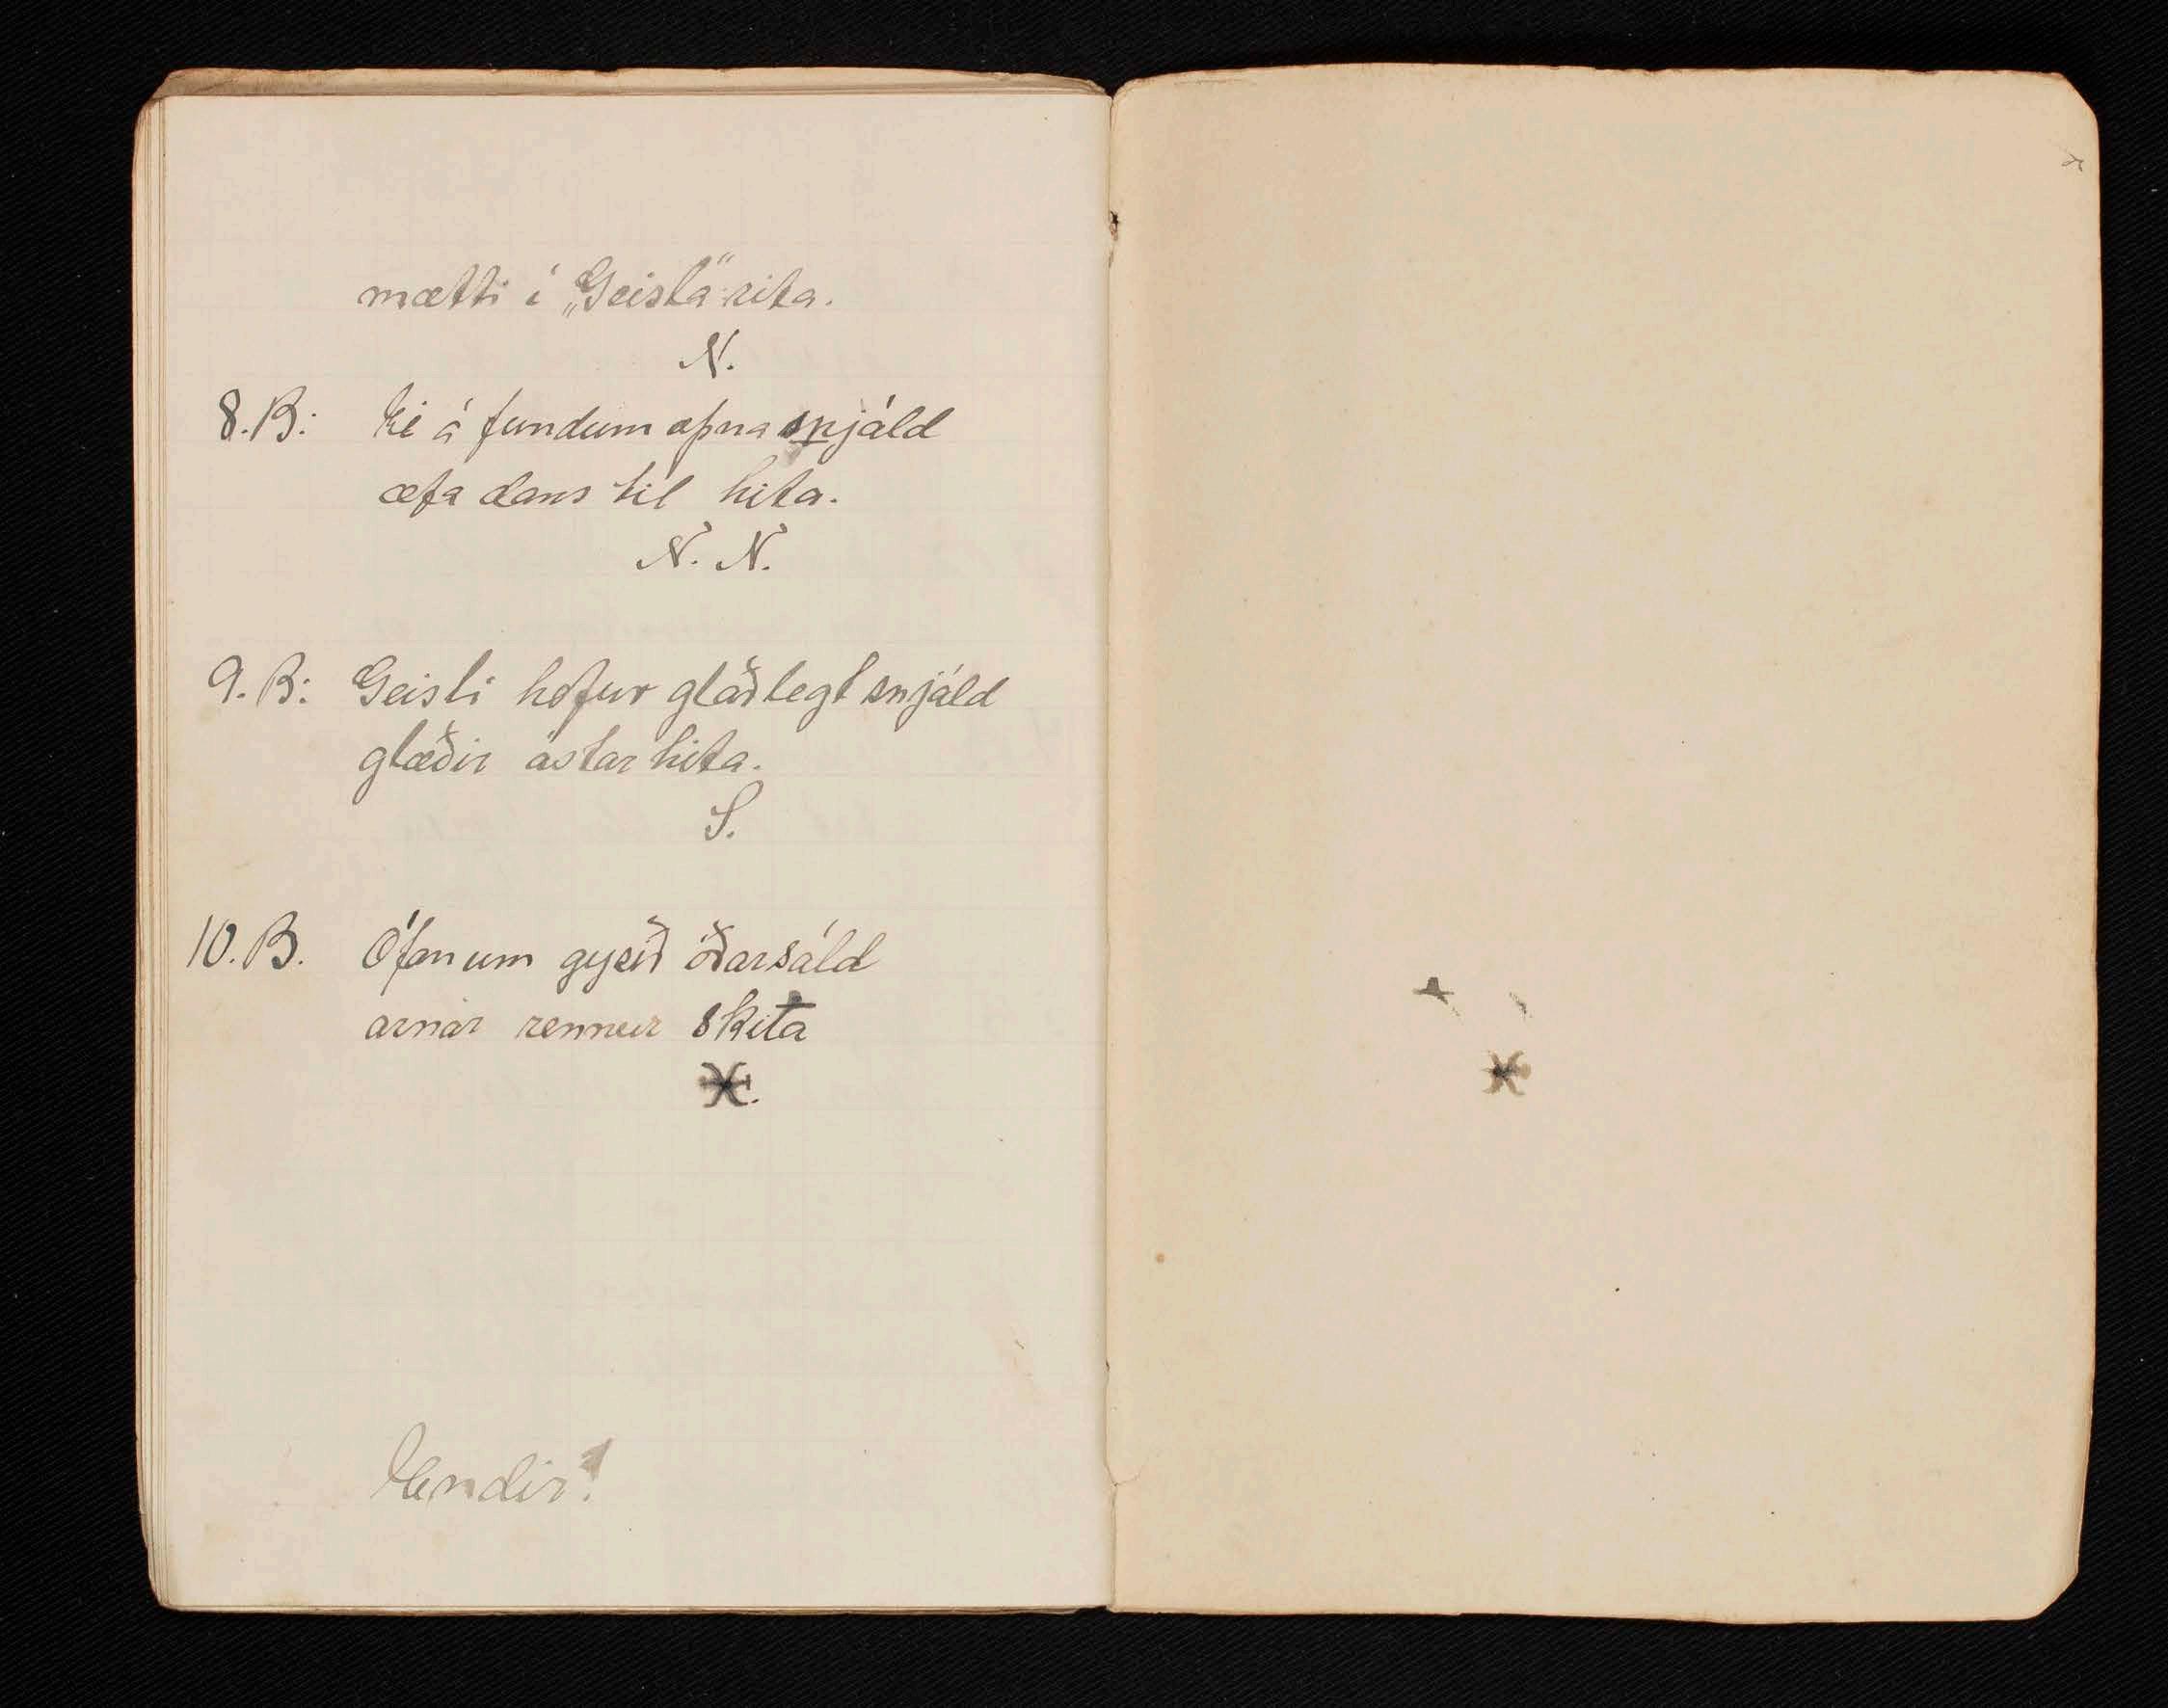 mætti í „Geisla“ rita.
N.
8. B: á fundum opna snjáld
æfa dans til hita.
N. N.
9. B: Geisli hefur glaðlegt snjáld
glæðir ástar hita.
S.
10. B. Ofan um óðarsáld
arnar rennur skita
X.
Endir!